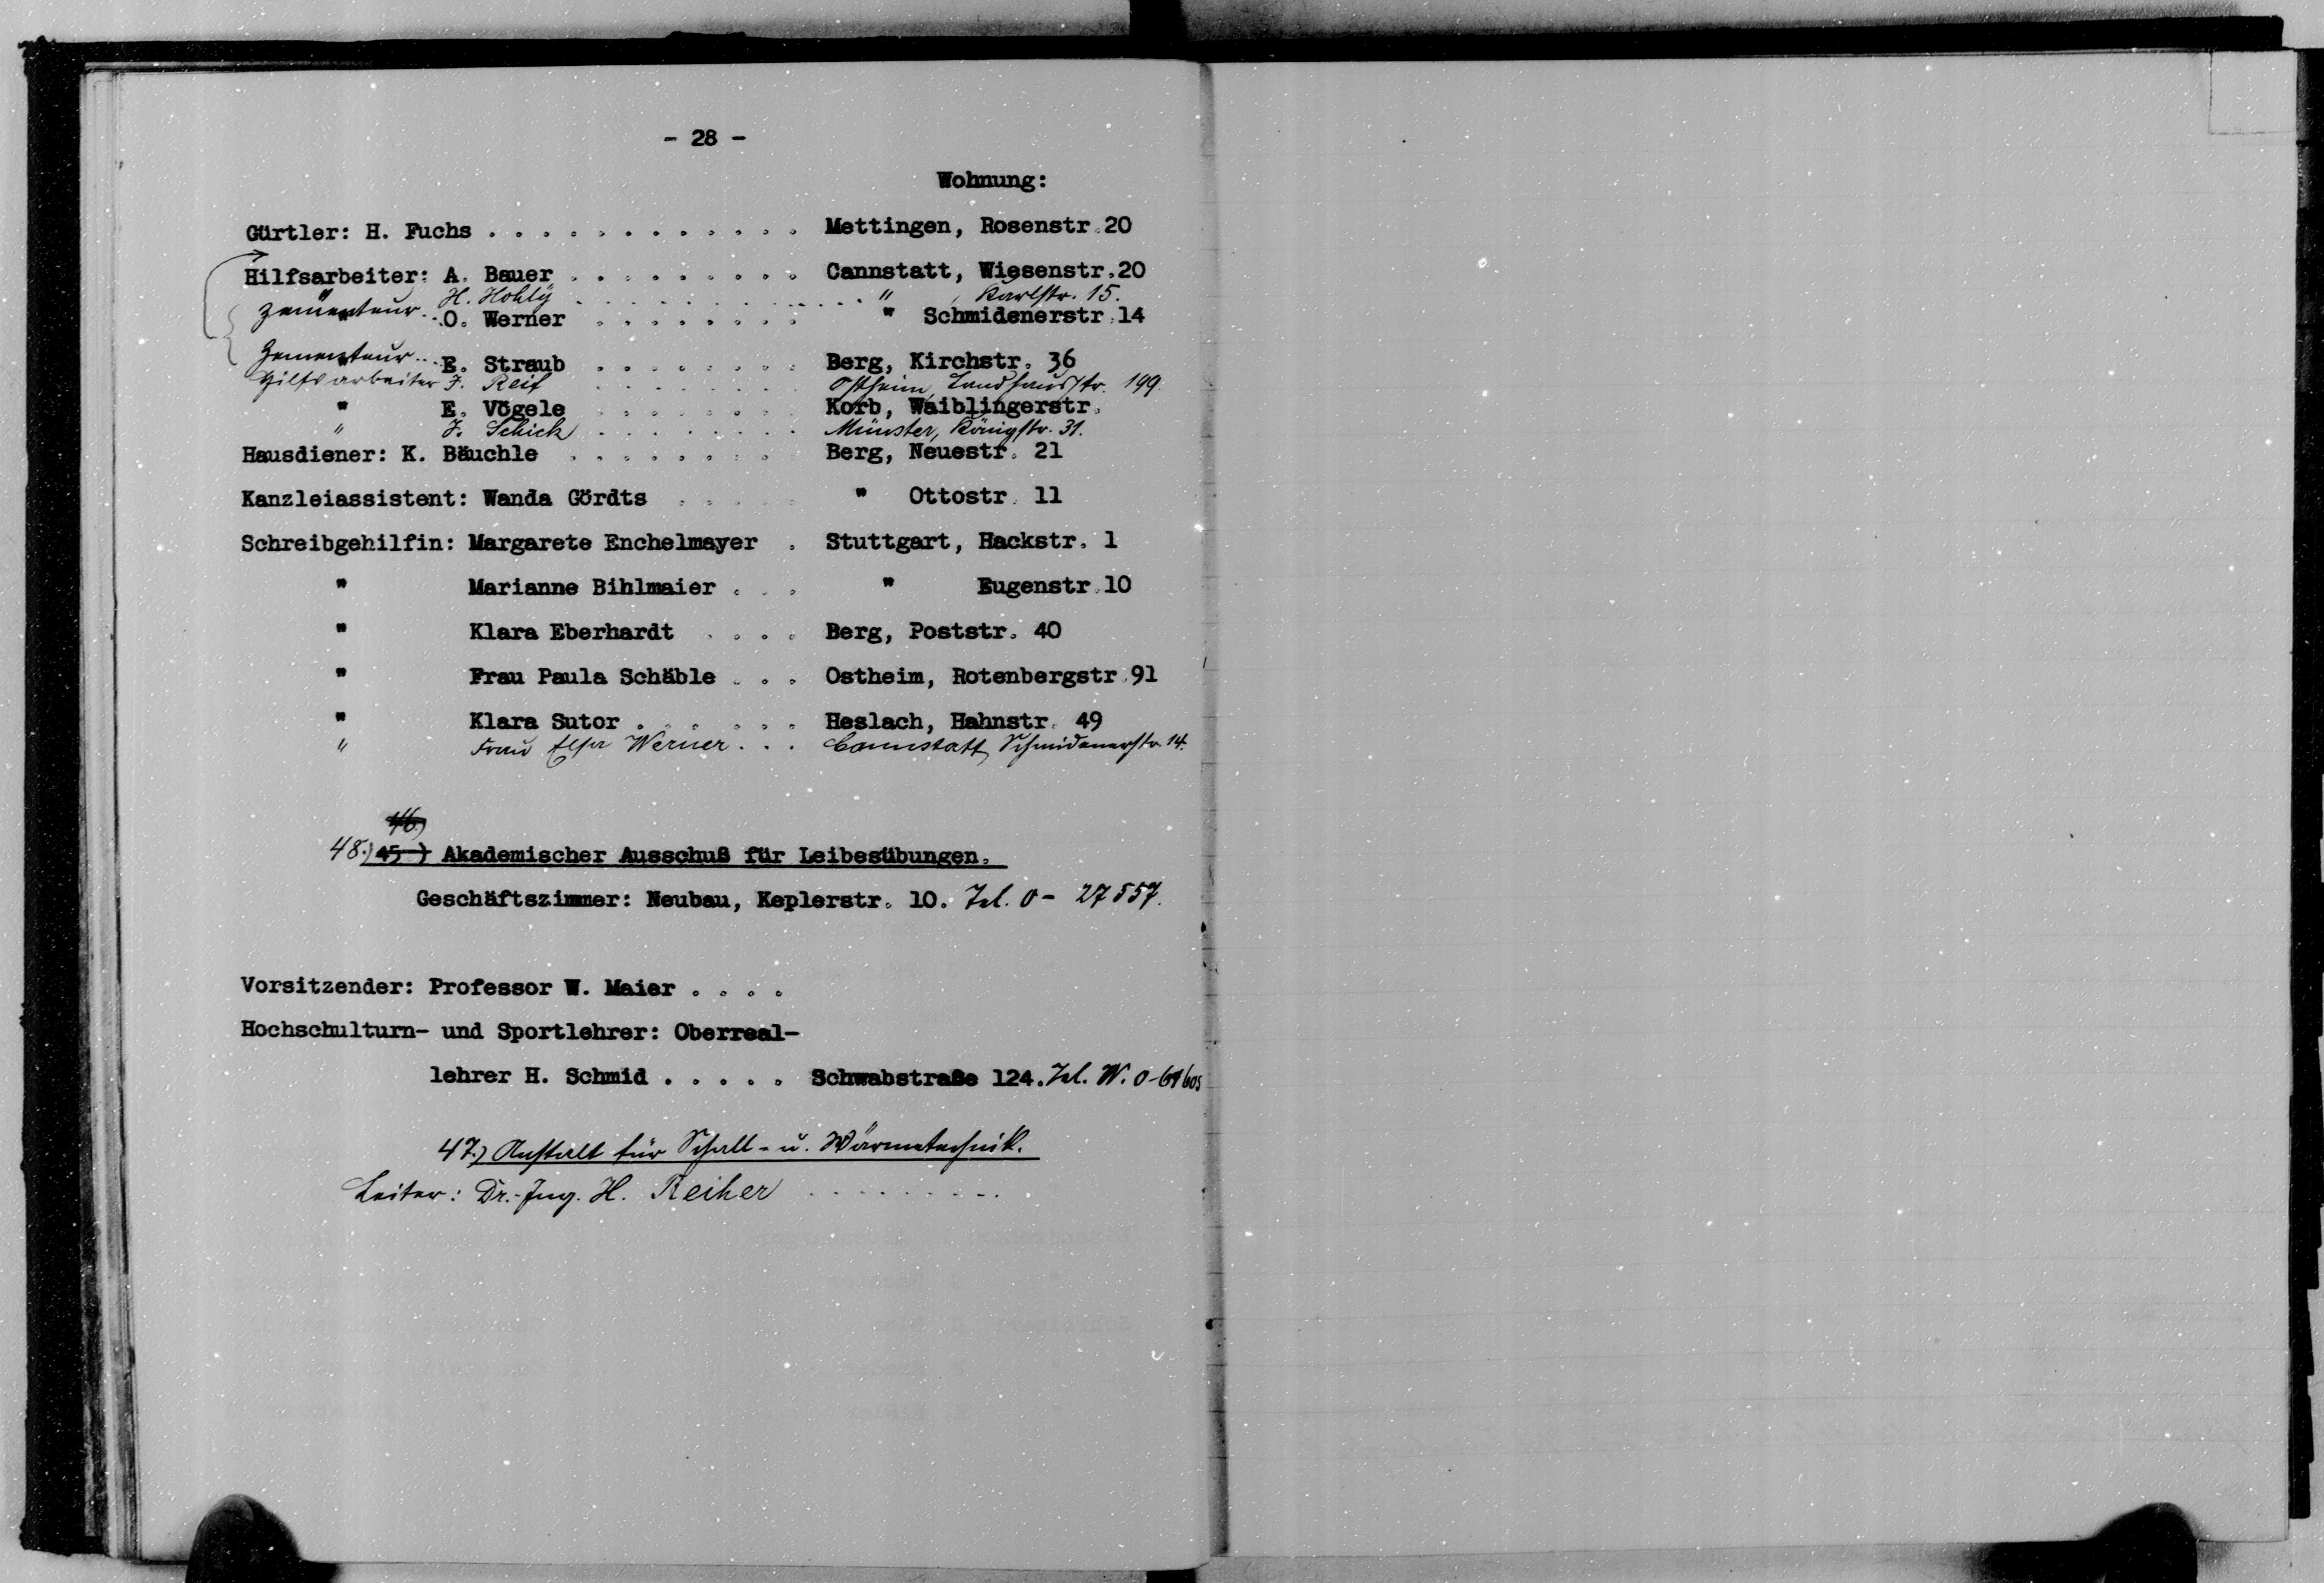 - 28 -
Wohnung:
Gürtler: H. Fuchs . . . . . . . . . . . . Mettingen, Rosenstr. 20
Hilfsarbeiter: A. Bauer . . . . . . . . . Cannstatt, Wiesenstr. 20
" H. Hohly . . . . . . . . . . . " , Karlstr. 15.
Zementeur . . O. Werner . . . . . . . . " Schmidenerstr. 14
Zementeur . . E. Straub . . . . . . . . Berg, Kirchstr. 36
Hilfsarbeiter F. Reif . . . . . . . . Ostheim, Landhausstr. 199.
" E. Vögele . . . . . . . Korb, Waiblingerstr.
" J. Schick . . . . . . . . Münster, Königstr. 31.
Hausdiener: K. Bäuchle . . . . . . . . Berg, Neuestr. 21
Kanzleiassistent: Wanda Gördts . . . . . " Ottostr. 11
Schreibgehilfin: Margarete Enchelmayer . Stuttgart, Hackstr. 1
" Marianne Bihlmaier . . . " Eugenstr. 10
" Klara Eberhardt . . . . Berg, Poststr. 40
" Frau Paula Schäble . . . Ostheim, Rotenbergstr. 91
" Klara Sutor . . . . . . Heslach, Hahnstr. 49
" Frau Elsa Werner . . . Cannstatt, Schmidenerstr. 14.
46.)
48.) 45.) Akademischer Ausschuß für Leibesübungen.
Geschäftszimmer: Neubau, Keplerstr. 10. Tel. 0 - 27557.
Vorsitzender: Professor W. Maier . . . .
Hochschulturn- und Sportlehrer: Oberreal-
lehrer H. Schmid . . . . . Schwabstraße 124. Tel. W. 0-61605
47.) Anstalt für Schall- u. Wärmetechnik.
Leiter: Dr.-Ing. H. Reiher . . . . . . . . .